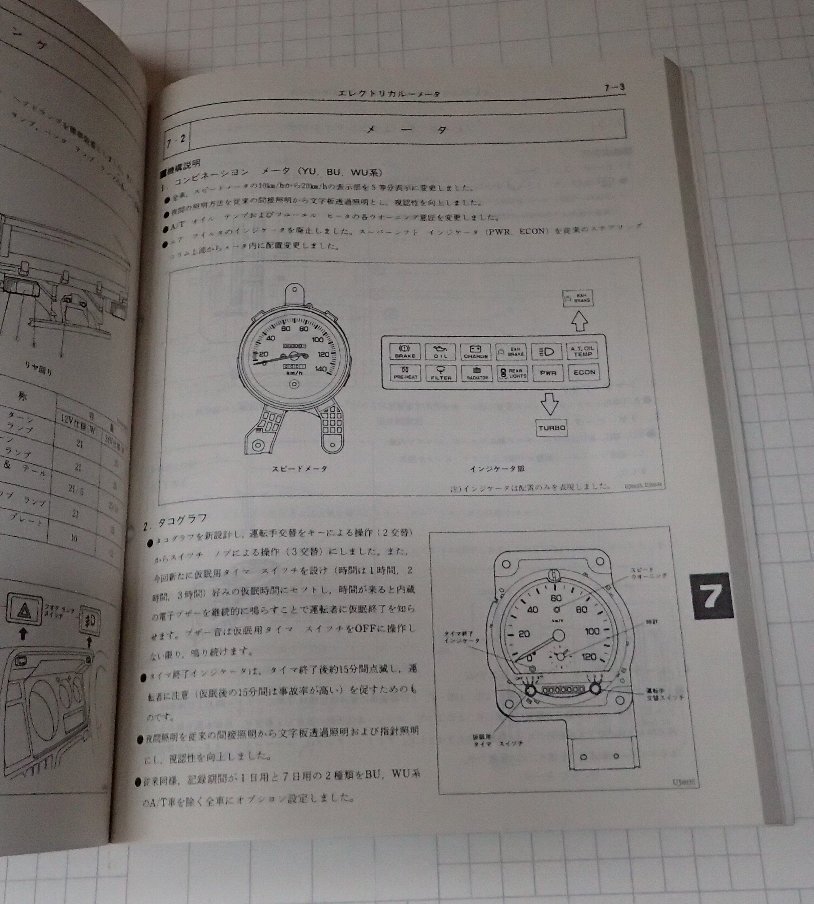 ング
リヤ廻り
称
ターン
ランプ
12V仕様 W
21
ランプ
21
& テール
21/5
ランプ
21
プレート
10
スイッチ
エレクトリカルーメータ
7－3
7－2
メータ
■機構説明
1. コンビネーション メータ (YU, BU, WU系)
●全車, スピードメータの10km/hから20km/hの表示部を5等分表示に変更しました。
●夜間の照明方法を従来の間接照明から文字板透過照明とし, 視認性を向上しました。
●A/T オイル テンプおよびフューエル ヒータの各ウオーニング意匠を変更しました。
●エア フイルタのインジケータを廃止しました。スーパーシフト インジケータ (PWR, ECON) を従来のステアリング
コラム上部からメータ内に配置変更しました。
0 20 40 60 80 100 120 140
km/h
EXH
BRAKE
BRAKE
OIL
CHARGE
EXH
BRAKE
A.T. OIL
TEMP
PREHEAT
FILTER
RADIATOR
REAR
LIGHTS
PWR
ECON
TURBO
スピードメータ
インジケータ類
注)インジケータは配置のみを表現しました。
2. タコグラフ
●タコグラフを新設計し, 運転手交替をキーによる操作 (2交替)
からスイッチ ノブによる操作 (3交替) にしました。また,
今回新たに仮眠用タイマ スイッチを設け (時間は1時間, 2
時間, 3時間) 好みの仮眠時間にセットし, 時間が来ると内蔵
の電子ブザーを継続的に鳴らすことで運転者に仮眠終了を知ら
せます。ブザー音は仮眠用タイマ スイッチをOFFに操作し
ない限り, 鳴り続けます。
●タイマ終了インジケータは, タイマ終了後約15分間点滅し, 運
転者に注意 (仮眠後の15分間は事故率が高い) を促すためのも
のです。
●夜間照明を従来の間接照明から文字板透過照明および指針照明
にし, 視認性を向上しました。
●従来同様, 記録期間が1日用と7日用の2種類をBU, WU系
のA/T車を除く全車にオプション設定しました。
スピード
ウオーニング
タイマ終了
インジケータ
時計
0 20 40 60 80 100 120
km/h
運転手
交替スイッチ
仮眠用
タイマ スイッチ
7